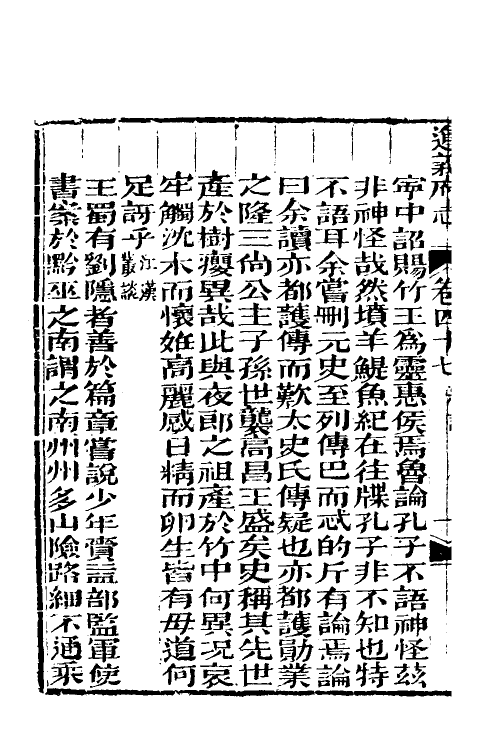 遵義府志 卷四十七
寧中詔賜竹王爲靈惠侯焉魯論孔子不語神怪兹
非神怪哉然墳羊鯷魚紀在往牒孔子非不知也特
不語耳余嘗刪元史至列傳巴而忒的斤有論焉論
曰余讀亦都護傳而歎太史氏傳疑也亦都護勛業
之隆三尚公主子孫世襲高昌王盛矣史稱其先世
產於樹癭異哉此與夜郎之祖產於竹中何異況哀
牢觸沈木而懷姙高麗感日精而卵生皆有毋道何
足訝乎江漢叢談
王蜀有劉隱者善於篇章嘗說少年賫益部監軍使
書索於黔巫之南謂之南州州多山險路細不通乘